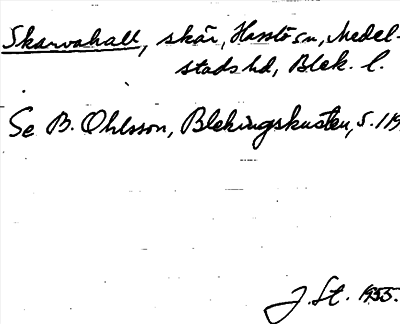 Skarvahall, skär, Hasslö sn, Medel-
stads hd, Blek. l.
Se B. Ohlsson, Blekingskusten, s. 119
J. St. 1955.